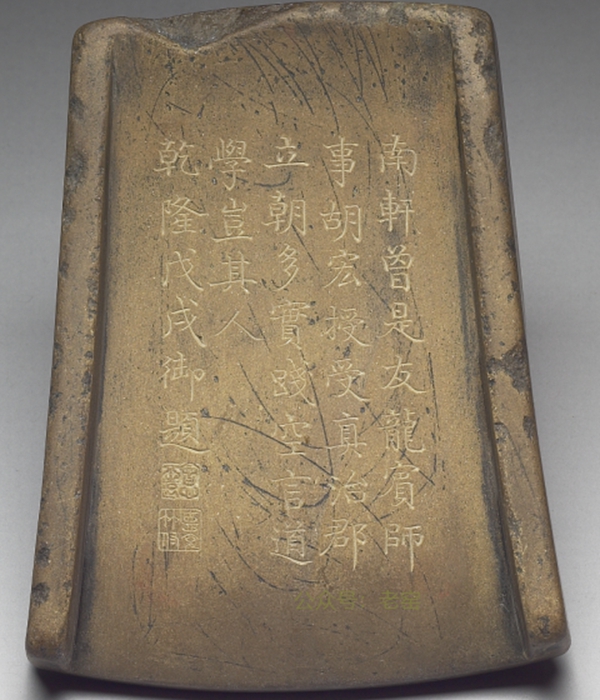 南軒曽是友龍賓師
事胡宏授受真治郡
立朝多實踐空言道
學豈其人
乾隆戊戌御題